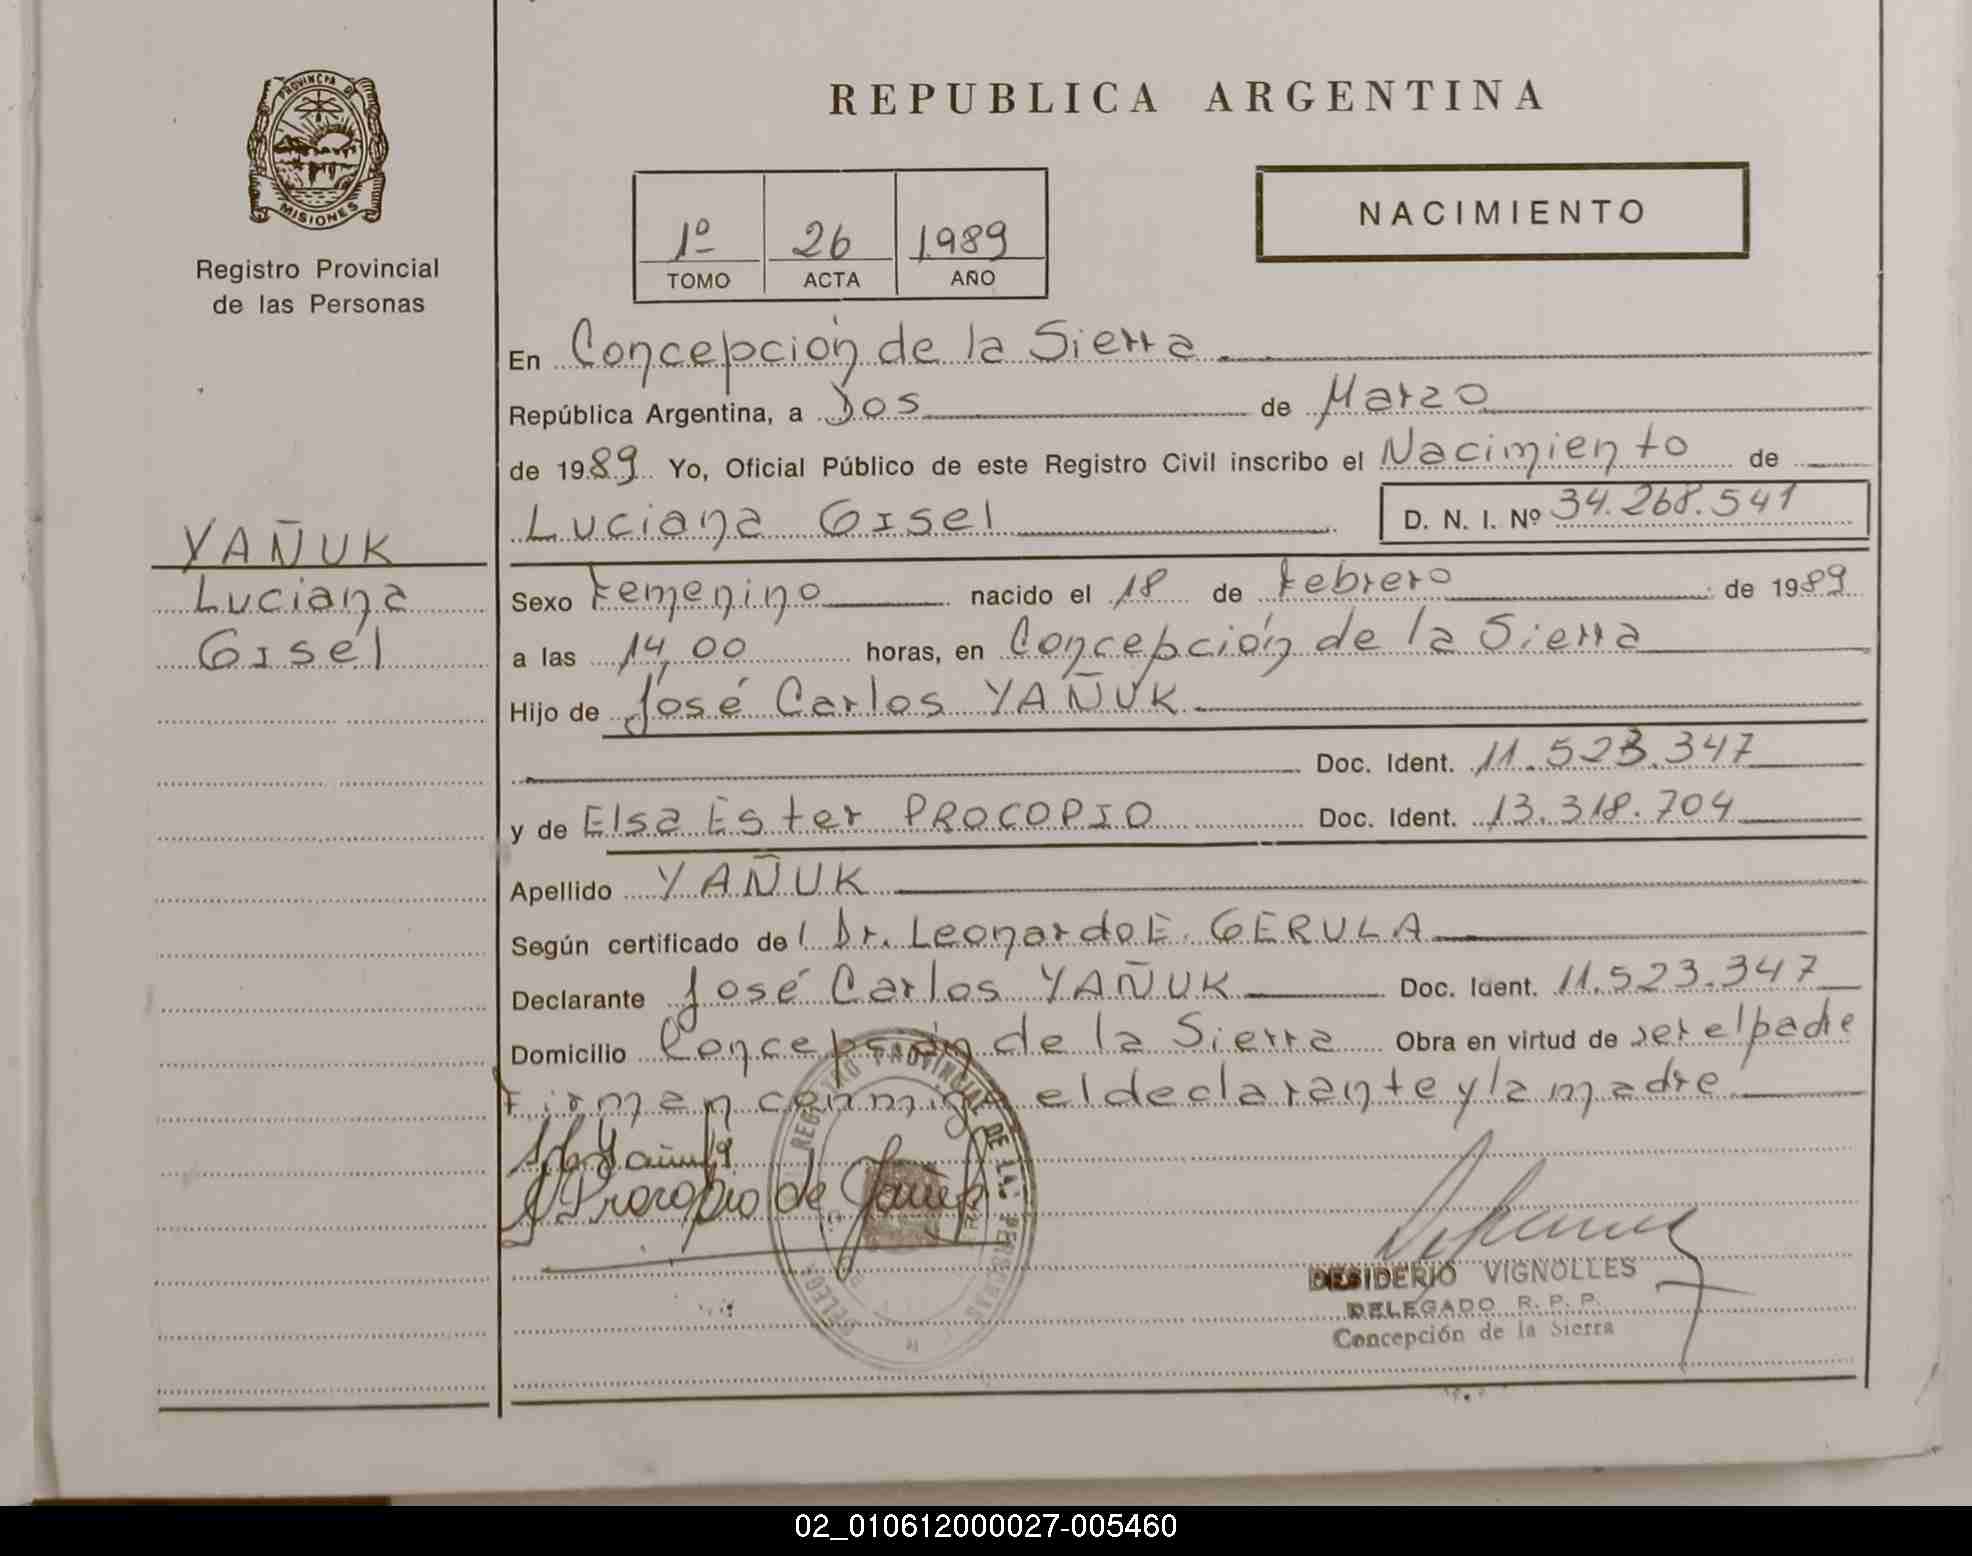 PROVINCIA DE
MISIONES
Registro Provincial
de las Personas
YAÑUK
Luciana
Gisel
REPUBLICA ARGENTINA
1º 26 1989
TOMO ACTA AÑO
NACIMIENTO
En Concepción de la Sierra
República Argentina, a Dos de Marzo
de 1989 Yo, Oficial Público de este Registro Civil inscribo el Nacimiento de
Luciana Gisel D. N. I. Nº 34.268.541
Sexo Femenino nacido el 18 de Febrero de 1989
a las 14,00 horas, en Concepción de la Sierra
Hijo de José Carlos YAÑUK
Doc. Ident. 11.523.347
y de Elsa Ester PROCOPIO Doc. Ident. 13.318.704
Apellido YAÑUK
Según certificado del Dr. Leonardo E. GERULA
Declarante José Carlos YAÑUK Doc. Ident. 11.523.347
Domicilio Concepción de la Sierra Obra en virtud de ser el padre
Firman conmigo el declarante y la madre
Procopio de
REGISTRO PROVINCIAL DE LAS PERSONAS
DESIDERIO VIGNOLLES
DELEGADO R. P. P.
Concepción de la Sierra
02_010612000027-005460